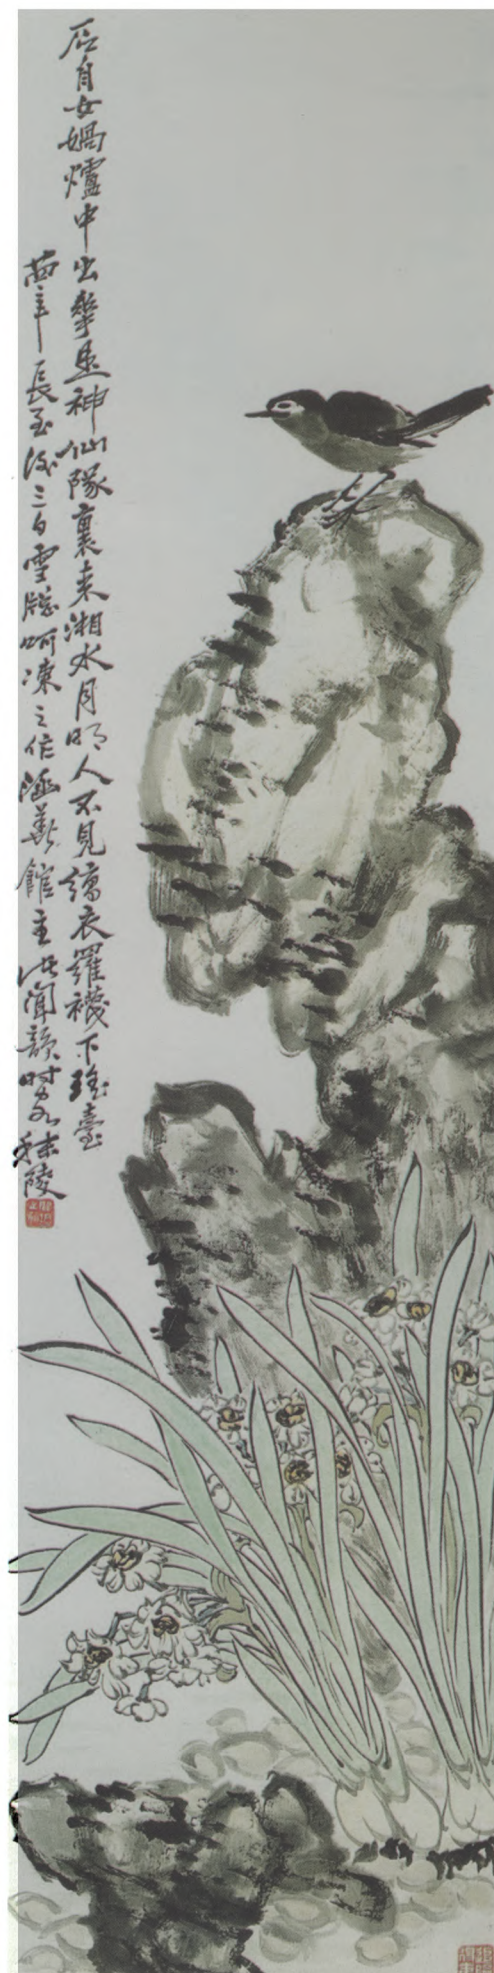 石自女媧爐中出華是神仙隊裏來湘水月明人不見縞衣羅襪下瑤臺
羊長至後三日雪牕呵凍之作涵館主聞韻時客秣陵